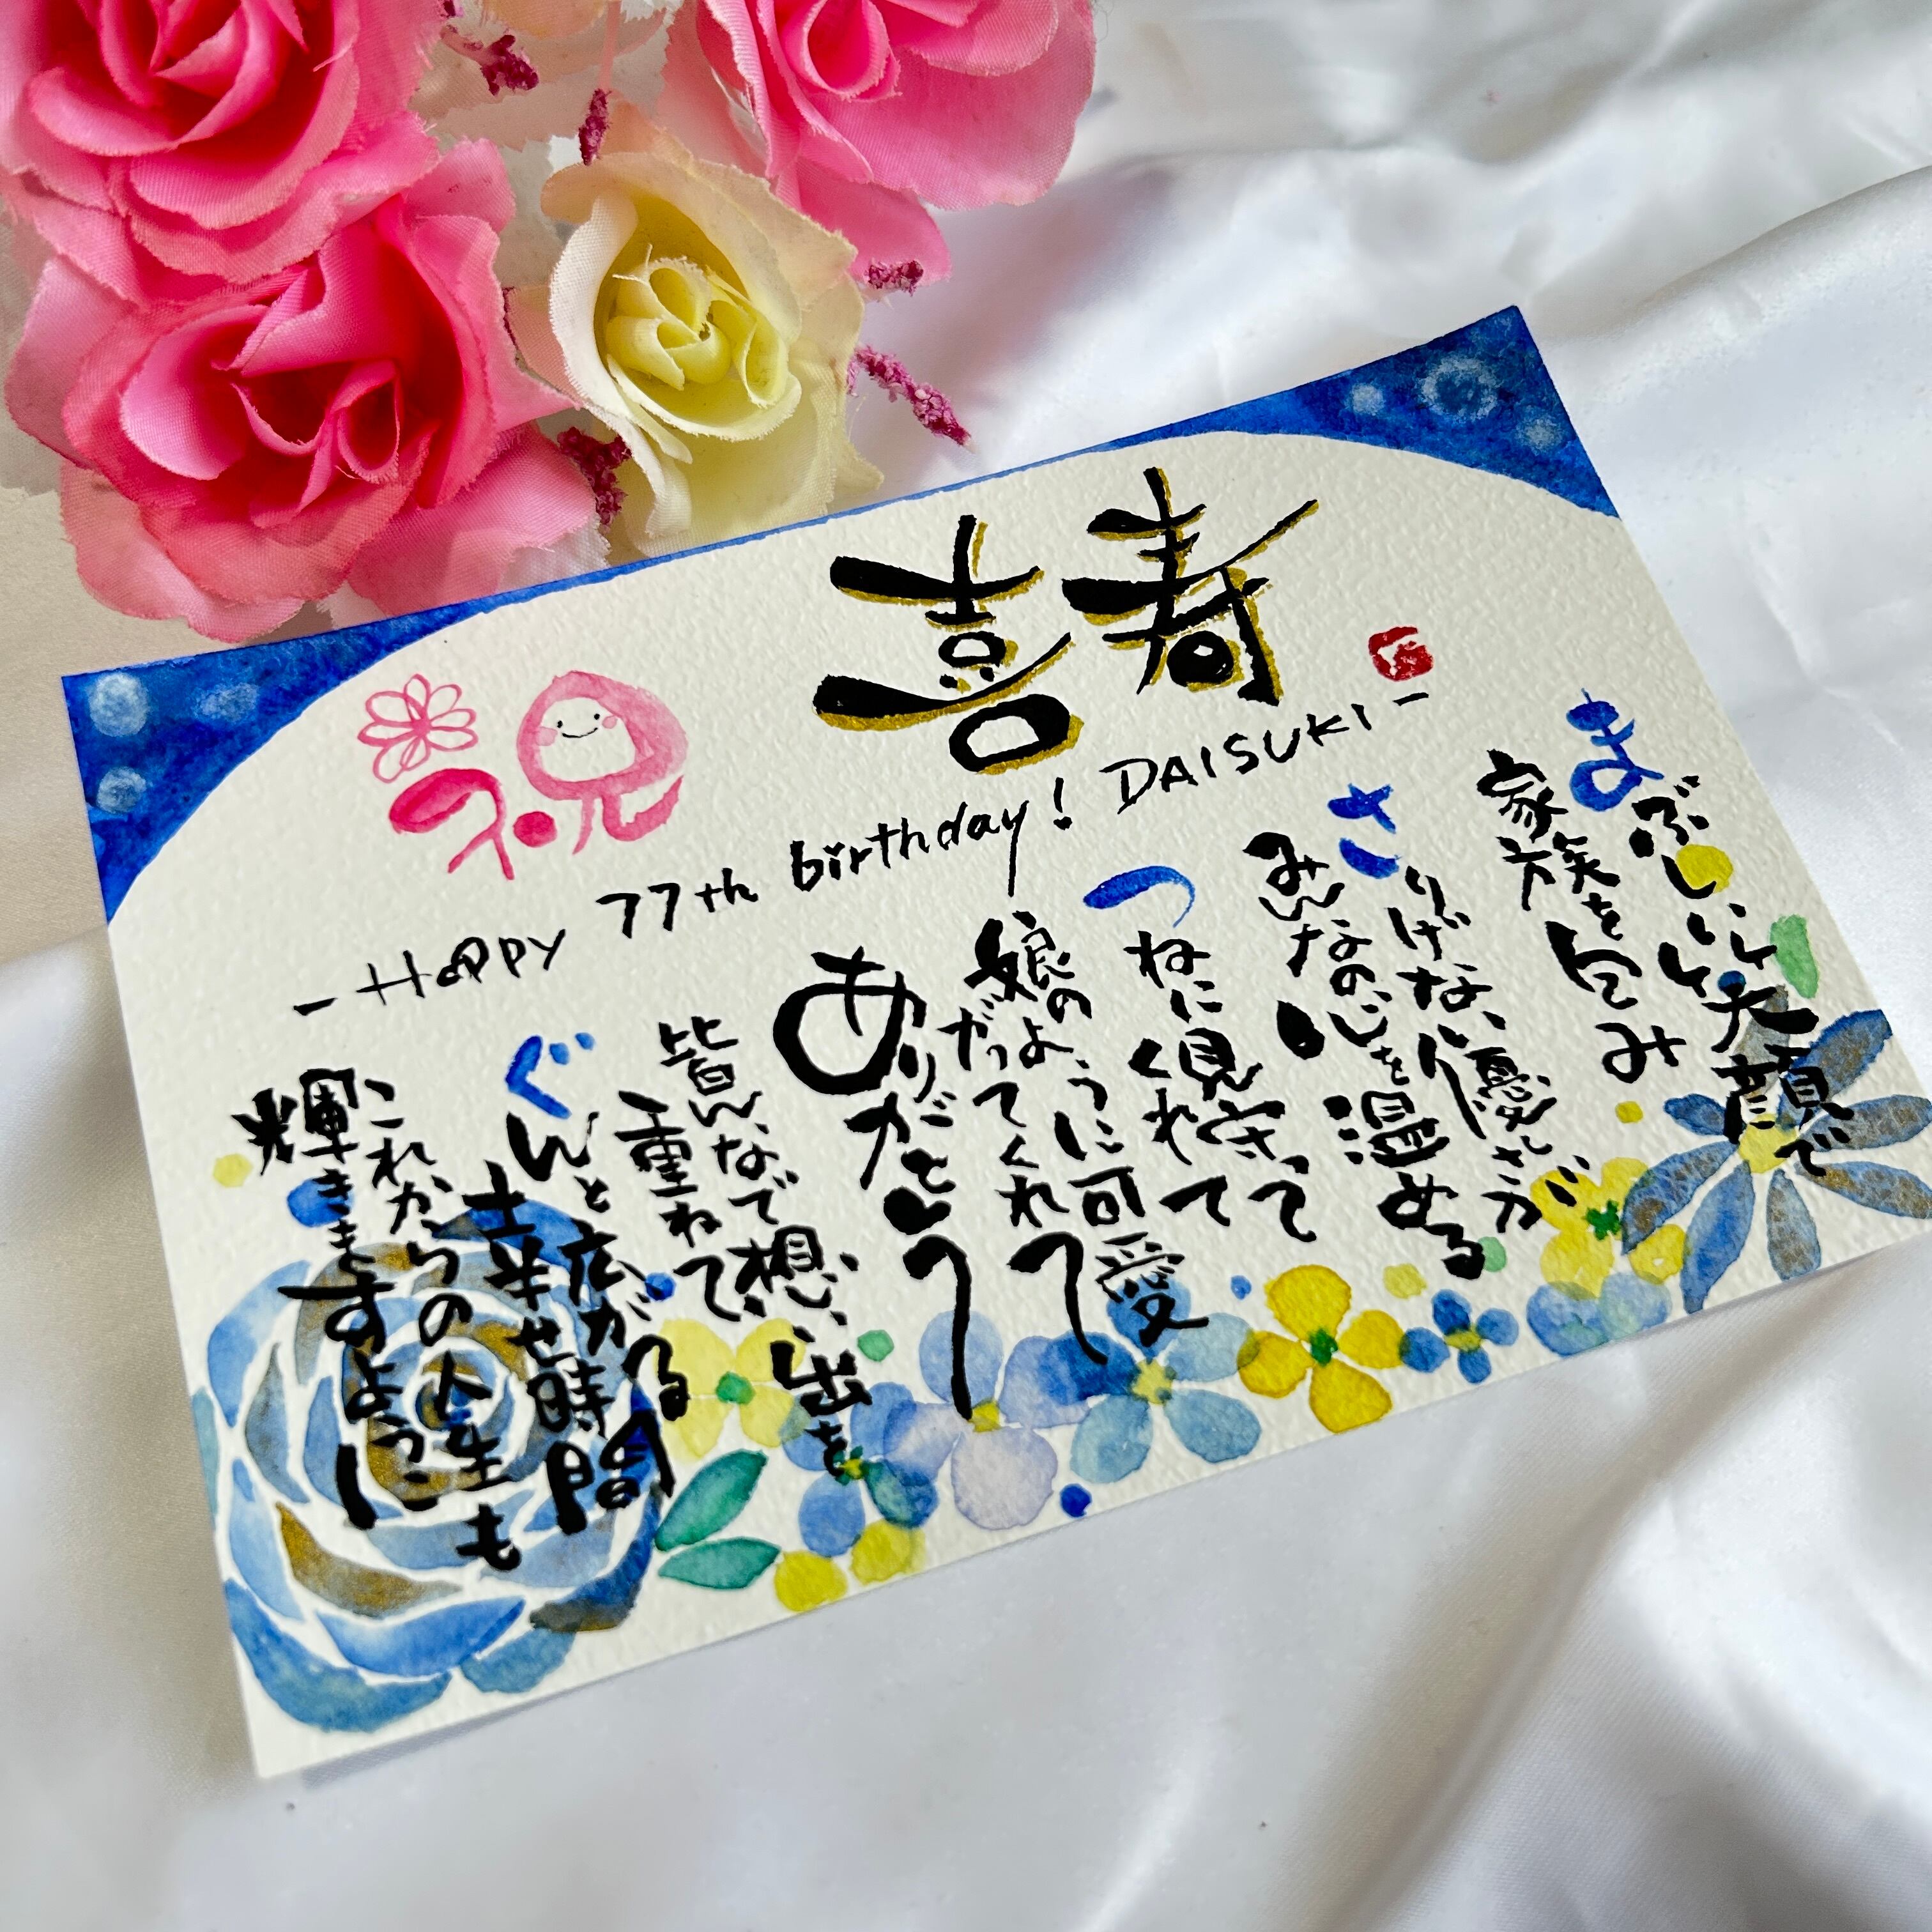 喜寿
祝
-Happy 77th birthday! DAISUKI-
まぶしい笑顔で
家族を包み
さりげない優しさが
みんなの心を温める
つねに見守って
くれて
娘のように可愛
がってくれて
ありがとう
皆んなで想い出を
重ねて
ぐんと広がる
幸せ時間
これからの人生も
輝きますように